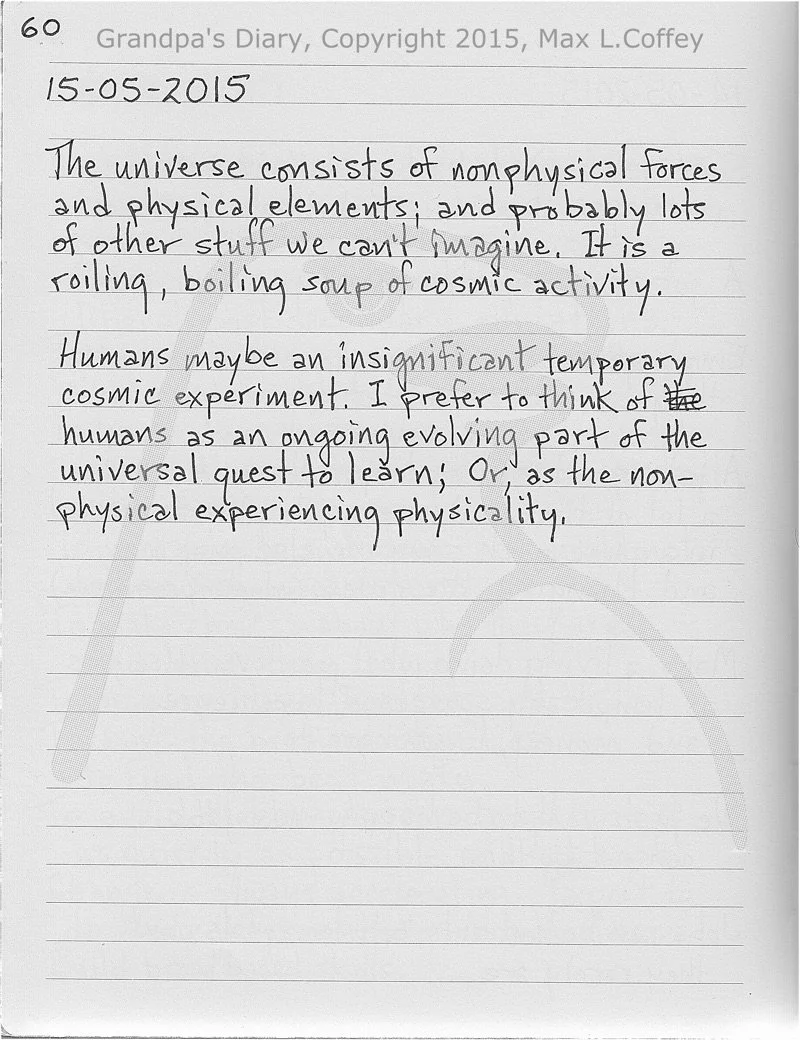 60
Grandpa's Diary, Copyright 2015, Max L.Coffey
15-05-2015
The universe consists of nonphysical forces
and physical elements; and probably lots
of other stuff we can't imagine. It is a
roiling, boiling soup of cosmic activity.
Humans maybe an insignificant temporary
cosmic experiment. I prefer to think of the
humans as an ongoing evolving part of the
universal quest to learn; Or, as the non-
physical experiencing physicality.